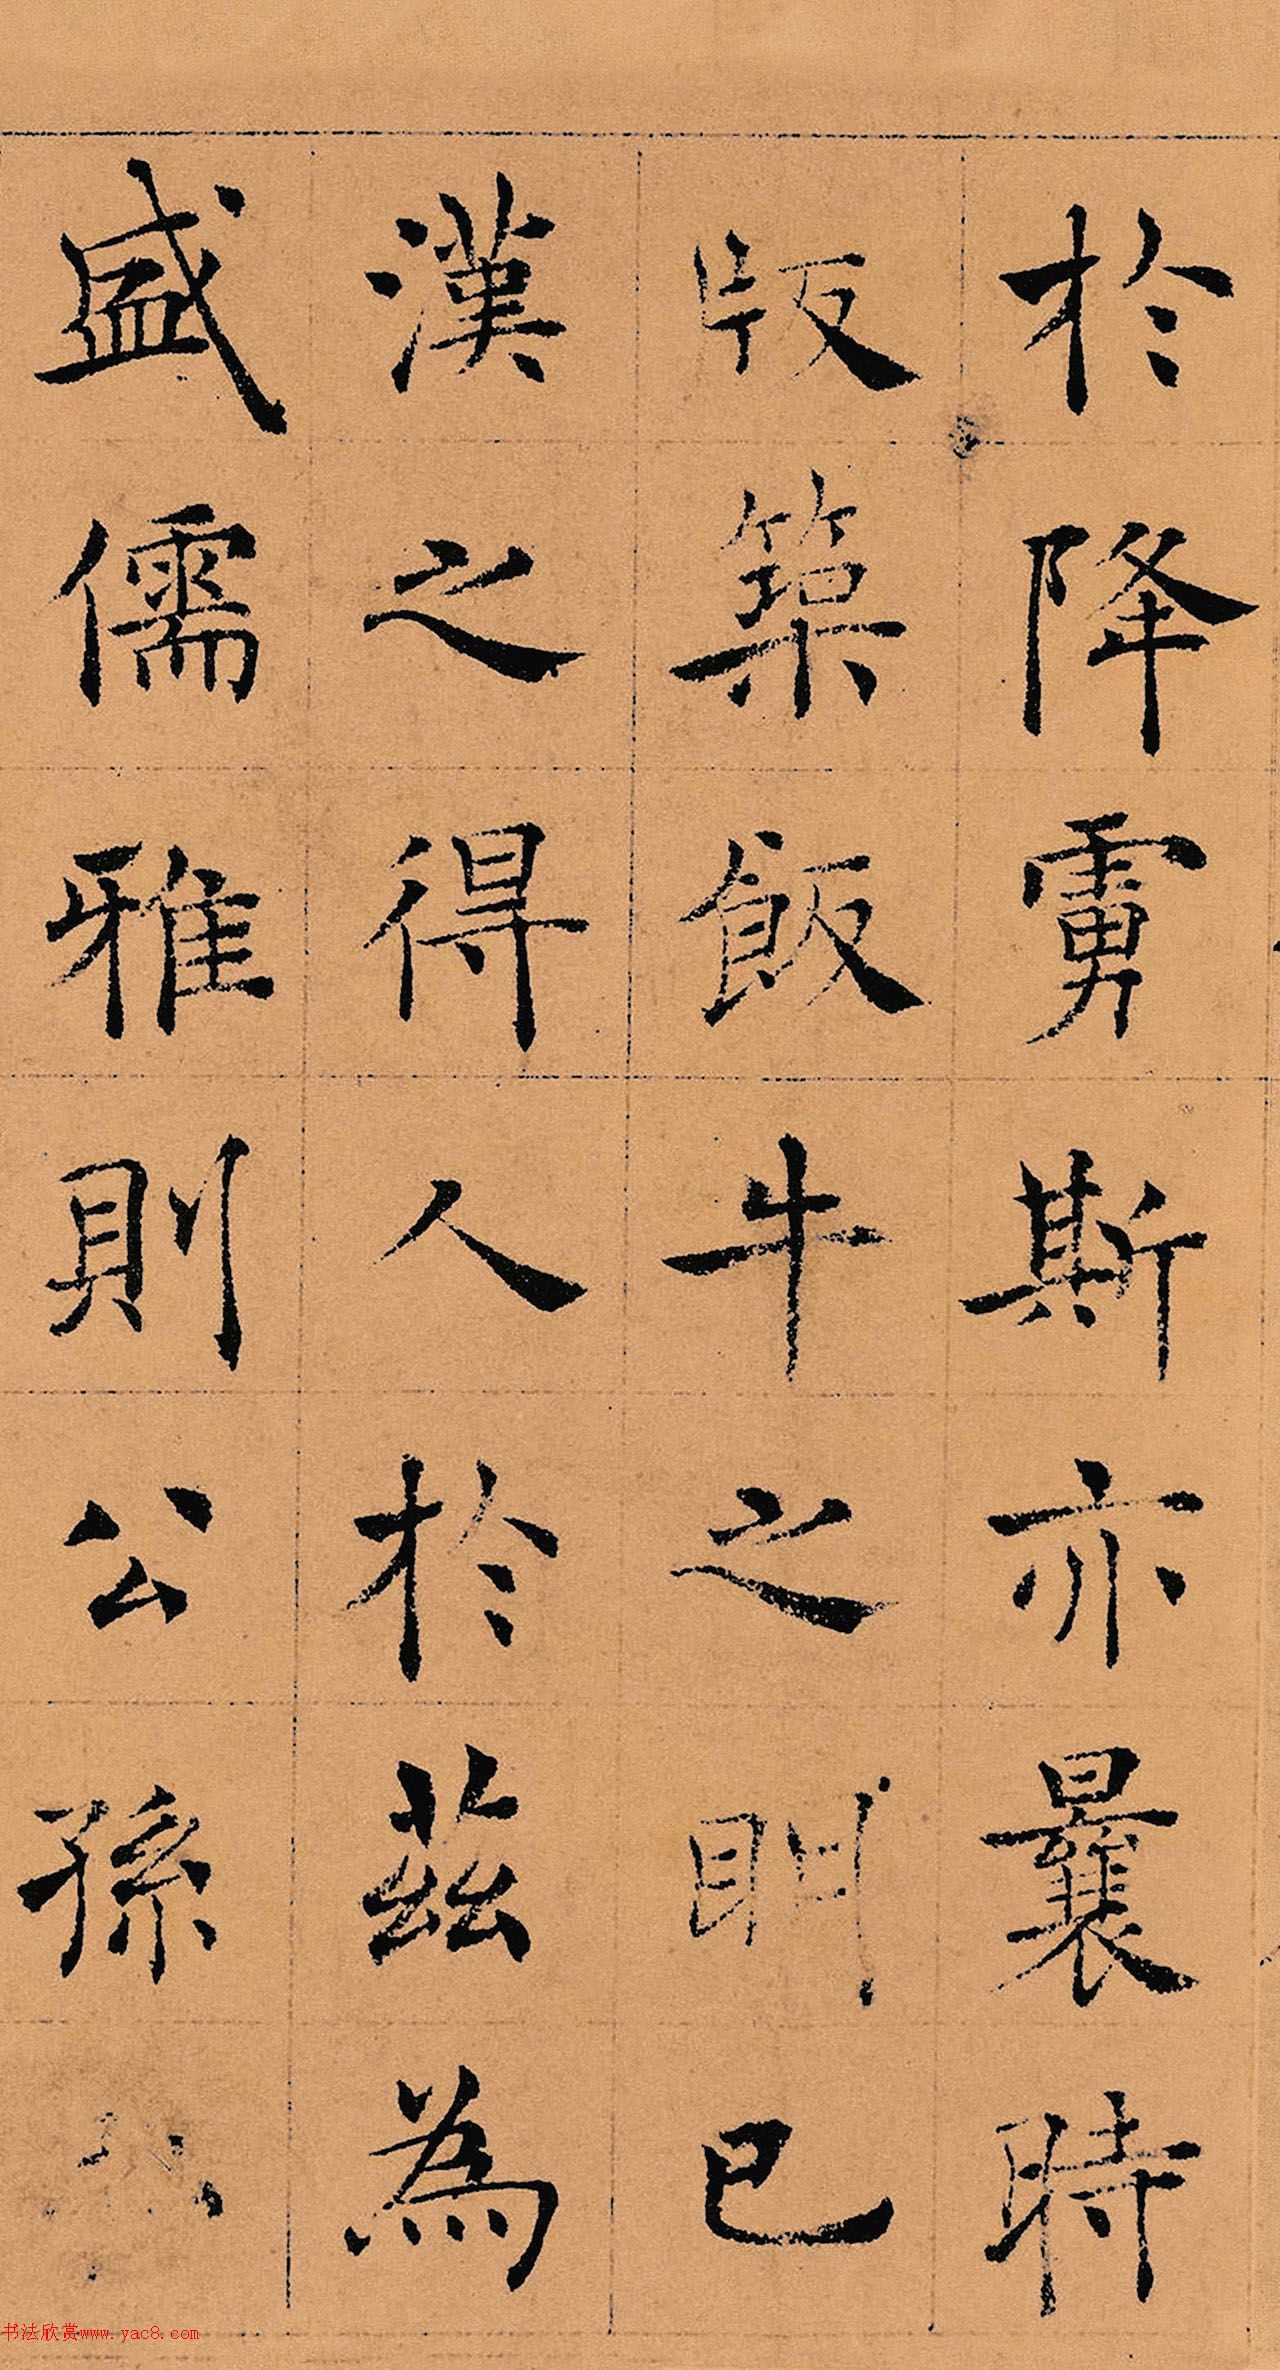 於降虏斯亦曩時
版築飯牛之朋已
漢之得人於茲為
盛儒雅則公孫
书法欣赏www.yac8.com